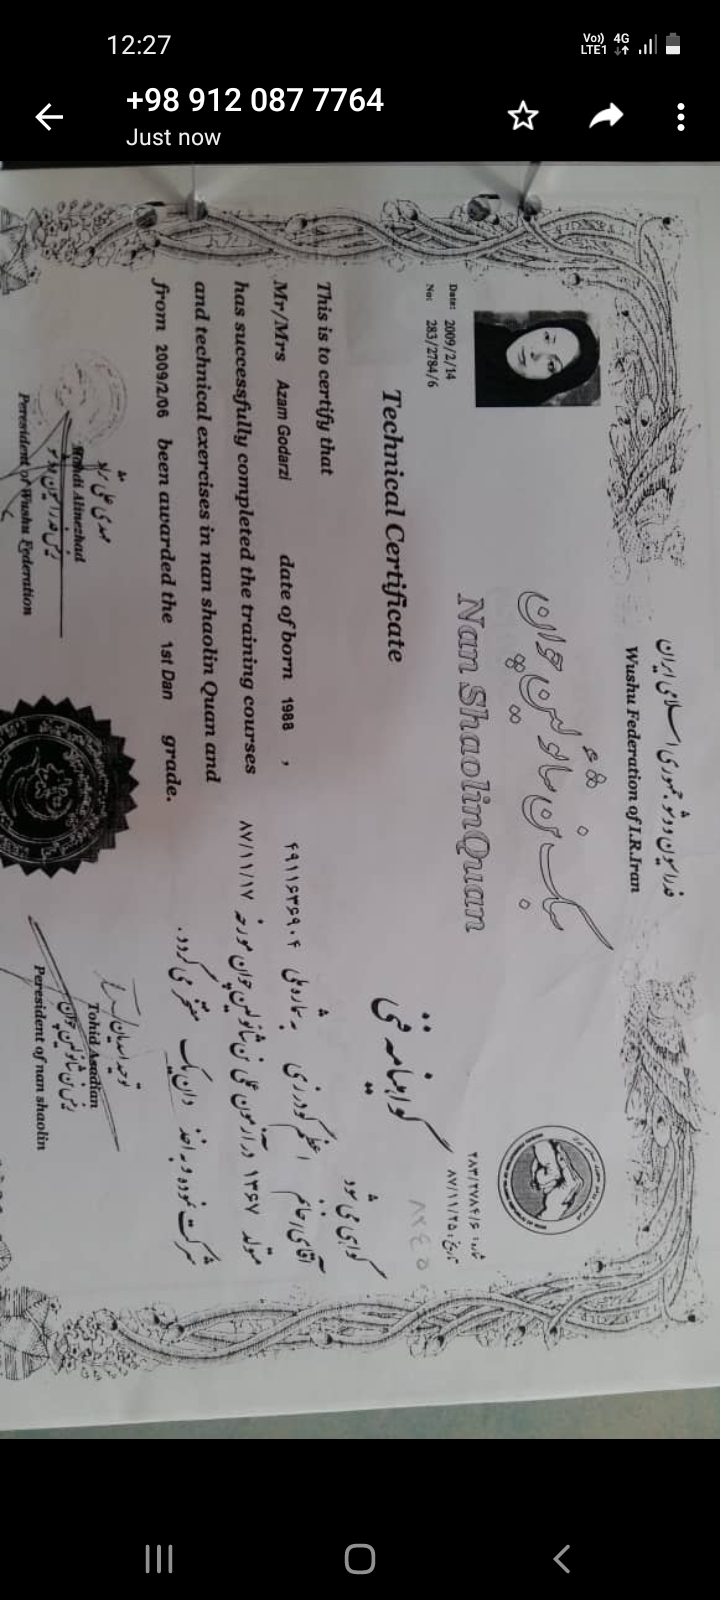 12:27
Vo) 4G
LTE1
+98 912 087 7764
Just now
فدراسیون ووشو جمهوری اسلامی ایران
Wushu Federation of I.R.Iran
سبک نن شائولین چوان
Nan ShaolinQuan
Date: 2009/2/14
No: 283/2784/6
شماره: ۲۸۳/۲۷۸۴/۶
تاریخ: ۸۷/۱۱/۲۵
Technical Certificate
گواهینامه فنی
This is to certify that
Mr/Mrs Azam Godarzi date of born 1988 ,
has successfully completed the training courses
and technical exercises in nan shaolin Quan and
from 2009/2/06 been awarded the 1st Dan grade.
گواهی می شود
آقای/خانم اعظم گودرزی به شماره ملی
متولد ۱۳۶۷ در آزمون فنی نن شائولین چوان مورخه ۸۷/۱۱/۱۷
شرکت نموده و به اخذ دان یک مفتخر می گردد.
مهدی علی نژاد
Mehdi Alinezhad
رئیس فدراسیون ووشو
Peresident of Wushu Federation
توحید اسدیان
Tohid Asadian
رئیس نن شائولین چوان
Peresident of nan shaolin